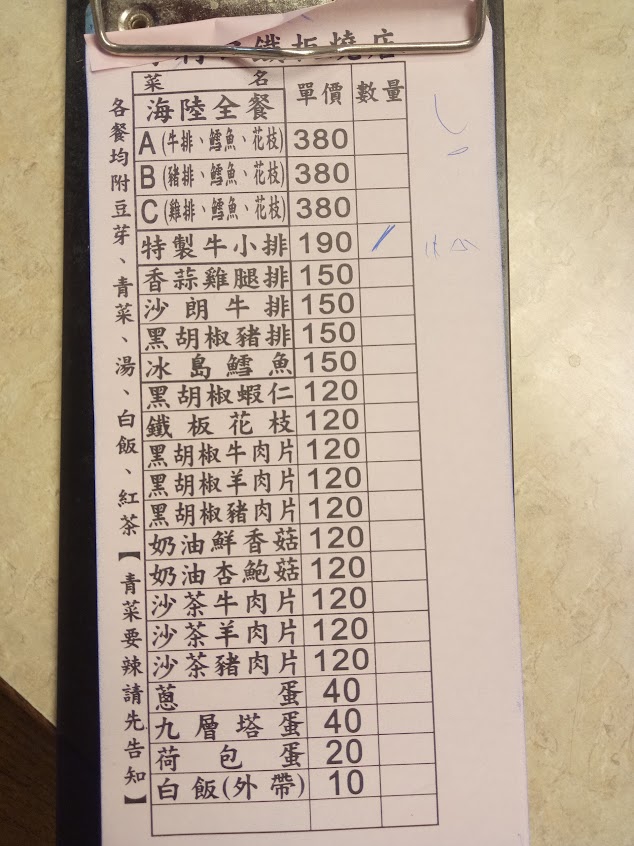 鐵板燒店
菜名 單價 數量
海陸全餐
A(牛排、鱈魚、花枝) 380
B(豬排、鱈魚、花枝) 380
C(雞排、鱈魚、花枝) 380
特製牛小排 190
香蒜雞腿排 150
沙朗牛排 150
黑胡椒豬排 150
冰島鱈魚 150
黑胡椒蝦仁 120
鐵板花枝 120
黑胡椒牛肉片 120
黑胡椒羊肉片 120
黑胡椒豬肉片 120
奶油鮮香菇 120
奶油杏鮑菇 120
沙茶牛肉片 120
沙茶羊肉片 120
沙茶豬肉片 120
蔥蛋 40
九層塔蛋 40
荷包蛋 20
白飯(外帶) 10
各餐均附豆芽、青菜、湯、白飯、紅茶【青菜要辣請先告知】